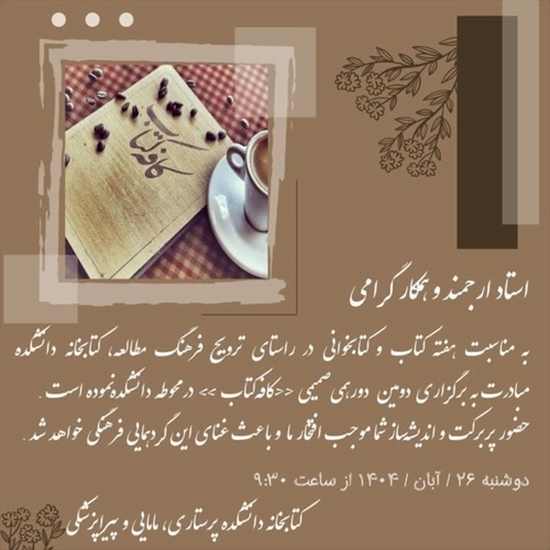 کافه کتاب
استاد ارجمند و همکار گرامی
به مناسبت هفته کتاب و کتابخوانی در راستای ترویج فرهنگ مطالعه، کتابخانه دانشکده
مبادرت به برگزاری دومین دورهمی صمیمی <<کافه کتاب >> در محوطه دانشکده نموده است .
حضور پربرکت و اندیشه‌ساز شما موجب افتخار ما و باعث غنای این گردهمایی فرهنگی خواهد شد .
دوشنبه ۲۶ / آبان / ۱۴۰۴ از ساعت ۹:۳۰
کتابخانه دانشکده پرستاری، مامایی و پیراپزشکی